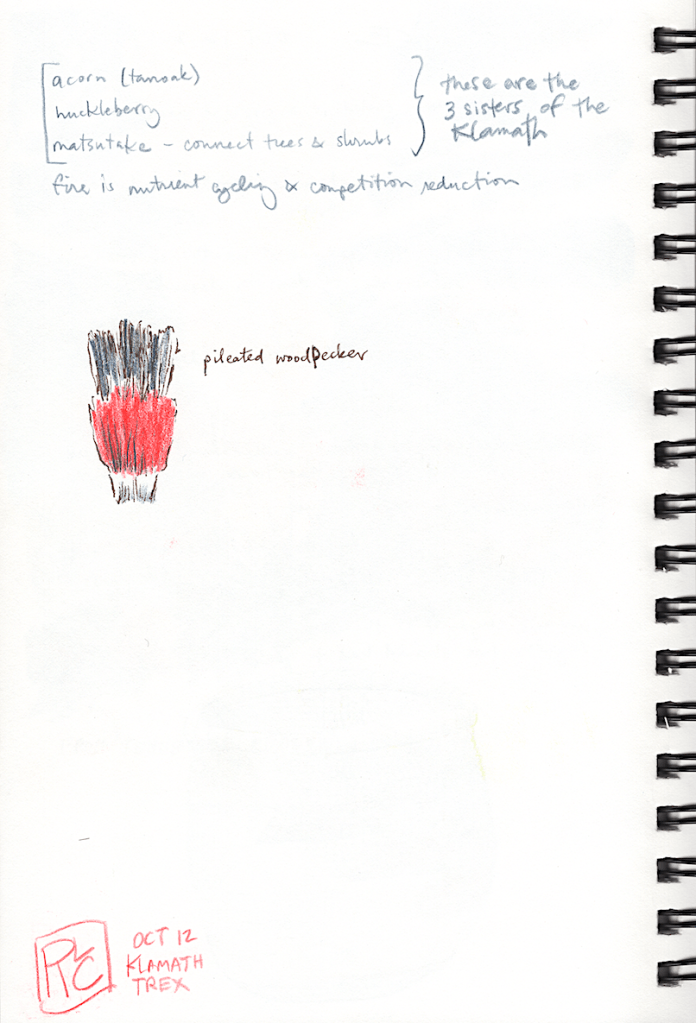 acorn (tanoak)
huckleberry
matsutake - connect trees & shrubs
these are the
3 sisters of the
Klamath
fire is nutrient cycling & competition reduction
pileated woodpecker
RLC
OCT 12
KLAMATH
TREX